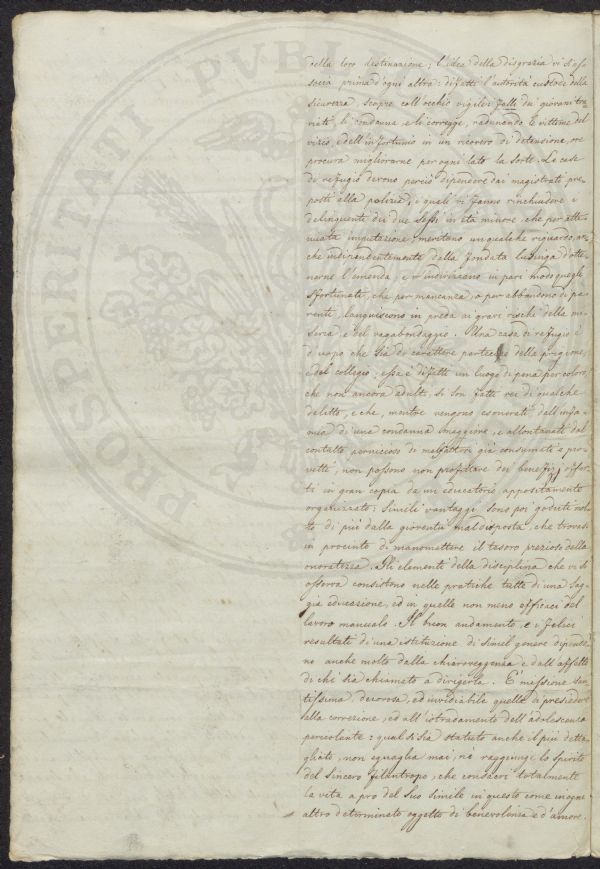 della loro destinazione; l'idea della disgrazia vi si as-
socia prima d'ogni altra: difatti l'autorità custode della
sicurezza, scopre coll'occhio vigile i falli dei giovani tra-
viati, li condanna, e li corregge, radunando le vittime del
vizio, e dell'infortunio in un ricovero di detenzione, ove
procura migliorarne per ogni lato la sorte. Le case
di refugio devono perciò dipendere dai magistrati pre-
posti alla polizia, i quali vi fanno rinchiudere i
delinquenti dei due sessi in età minore, che per atte-
nuata imputazione, meritano un qualche riguardo, an-
che indipendentemente dalla fondata lusinga d'otte-
nerne l'emenda, e v'indirizzano in pari modo quegli
sfortunati, che per mancanza, o per abbandono di pa-
renti, languiscono in preda ai gravi rischi della mi-
seria, e del vagabondaggio. Una casa di refugio è
d'uopo che sia di carattere partecipe della prigione,
e del collegio: essa è difatti un luogo di pena per coloro,
che non ancora adulti, si son fatti rei di qualche
delitto, e che, mentre vengono esonerati dall'infa-
mia di una condanna maggiore, e allontanati dal
contatto pernicioso di malfattori già consumati e pro-
vetti, non possono non profittare dei benefizj offer-
ti in gran copia da un educatorio appositamente
organizzato: Simili vantaggi sono poi goduti mol-
to di più dalla gioventù mal disposta, che trovasi
in procinto di manomettere il tesoro prezioso della
onoratezza. Gli elementi della disciplina che vi si
osserva consistono nelle pratiche tutte di una sag-
gia educazione, ed in quelle non meno efficaci del
lavoro manuale. Il buon andamento, e i felici
resultati di una istituzione di simil genere dipendo-
no anche molto dalla chiaroveggenza e dall'affetto
di chi sia chiamato a dirigerla. È missione san-
tissima, decorosa, ed invidiabile quella di presiedere
alla correzione, ed all'istradamento dell'adolescenza
pericolante: qual si sia statuto anche il più detta-
gliato, non eguaglia mai, nè raggiunge lo spirito
del sincero filantropo, che consacri totalmente
la vita a pro del suo simile in questo come in ogni
altro determinato oggetto di benevolenza e d'amore.